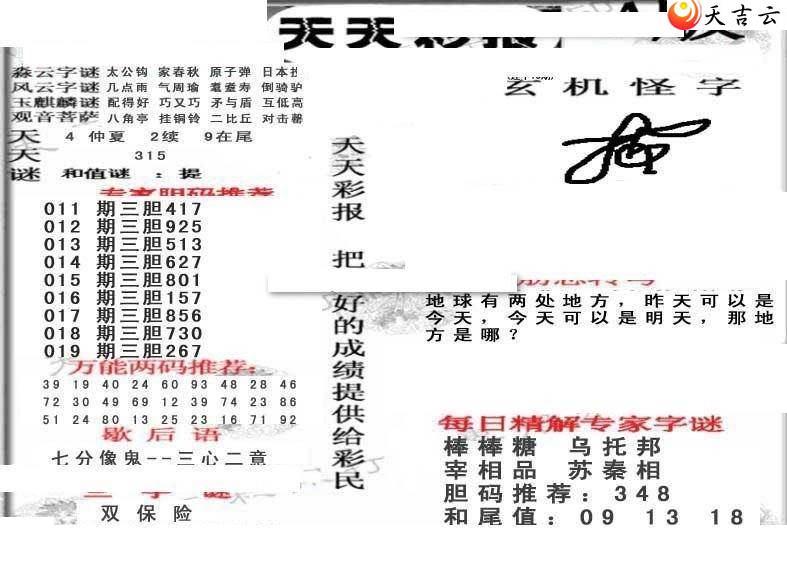 天吉云
天天彩报
玄机怪字
淼云字谜 太公钩 家春秋 原子弹 日本
风云字谜 几点雨 气周瑜 耄耋寿 倒骑驴
玉麒麟谜 配得好 巧又巧 矛与盾 互低高
观音菩萨 八角亭 挂铜铃 二比丘 对击
天 4 仲夏 2续 9在尾
天 315
谜 和值谜 : 提
专家胆码推荐
011 期三胆417
012 期三胆925
013 期三胆513
014 期三胆627
015 期三胆801
016 期三胆157
017 期三胆856
018 期三胆730
019 期三胆267
万能两码推荐:
39 19 40 24 60 93 48 28 46
72 30 49 69 12 39 74 23 86
51 24 80 13 25 23 16 71 92
歇后语
七分像鬼--三心二意
三字谜
双保险
天天彩报 把好的成绩提供给彩民
地球有两处地方，昨天可以是
今天，今天可以是明天，那地
方是哪？
每日精解专家字谜
棒棒糖 乌托邦
宰相品 苏秦相
胆码推荐: 348
和尾值: 09 13 18